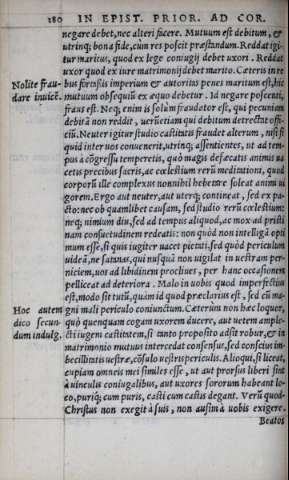 280 IN EPIST. PRIOR. AD COR.
negare debet, nec alteri fucere. Mutuum est debitum, &
utrinq; bona fide, cum res poscit præstandum. Reddat igi-
tur maritus, quod ex lege coniugij debet uxori. Reddat
uxor quod ex iure matrimonij debet marito. Cæteris in re
Nolite frau-
dare inuicē.
bus fortassis imperium & autoritas penes maritum est, hic
mutuum obsequiū ex æquo debetur. Id negare poscenti,
fraus est. Neq; enim is solum fraudator est, qui pecuniam
debitā non reddit, uerumetiam qui debitum detrectat offi-
ciū. Neuter igitur studio castitatis fraudet alterum, nisi si
quid inter uos conuenerit, utrinq; assentientes, ut ad tem-
pus à cōgressu temperetis, quò magis defæcatis animis ua
cetis precibus sacris, ac cœlestium rerū meditationi, quod
corporū ille complexus nonnihil hebetare soleat animi ui
gorem. Ergo aut neuter, aut uterq; contineat, sed ex pa-
cto: nec ob quamlibet causam, sed studio rerū cœlestium:
neq; nimium diu, sed ad tempus aliquod, ac mox ad pristi
nam consuetudinem redeatis: non quòd non intelligā opti
mum esse, si quis iugiter uacet pietati, sed quòd periculum
uideā, ne satanas, qui nusquā non uigilat in uestram per-
niciem, uos ad libidinem procliues, per hanc occasionem
pelliceat ad deteriora. Malo in uobis quod imperfectius
est, modo sit tutū, quàm id quod præclarius est, sed cū ma-
Hoc autem
dico secun-
dum indulg.
gni mali periculo coniunctum. Cæterùm non hæc loquor,
quò quenquam cogam uxorem ducere, aut uetem ample-
cti iugem castitatem, si tanto proposito adsit robur, & in
matrimonio mutuus intercedat consensus, sed conscius im-
becillitatis uestræ, cōsulo uestris periculis. Alioqui, si liceat,
cupiam omneis mei similes esse, ut aut prorsus liberi sint
à uinculis coniugalibus, aut uxores sororum habeant lo-
co, puriq; cum puris, casti cum castis degant. Verū quod
Christus non exegit à suis, non ausim à uobis exigere.
Beatos